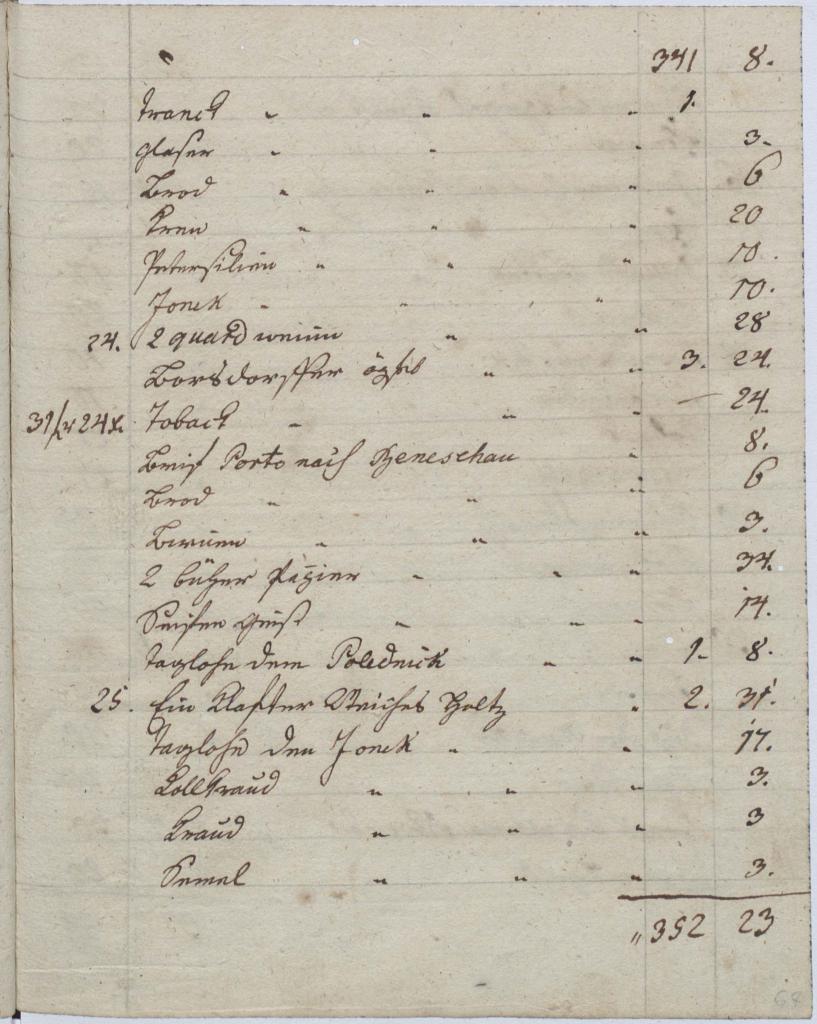 341 8.
tranck " " " 1.
glaser " " " 3.
Brod " " " 6
Kren " " " 20
Petersilien " " " 10.
Jonek " " " 10.
24. 2 quard " " 28
Borsdorffer öpfel " " 3. 24.
24 x. Toback " " " — 24.
Brief Porto nach Beneschau " 8.
Brod " " " 6
Birnen " " " 3.
2 bücher Papier " " " 34.
Seifen geist " " " 14.
taglohn dem Polednick " " 1. 8.
25. Ein Klafter Weiches Holtz " 2. 31.
taglohn den Jonek " " 17.
Kollkraud " " " 3.
Kraud " " " 3
Semel " " " 3.
" 352 23
68